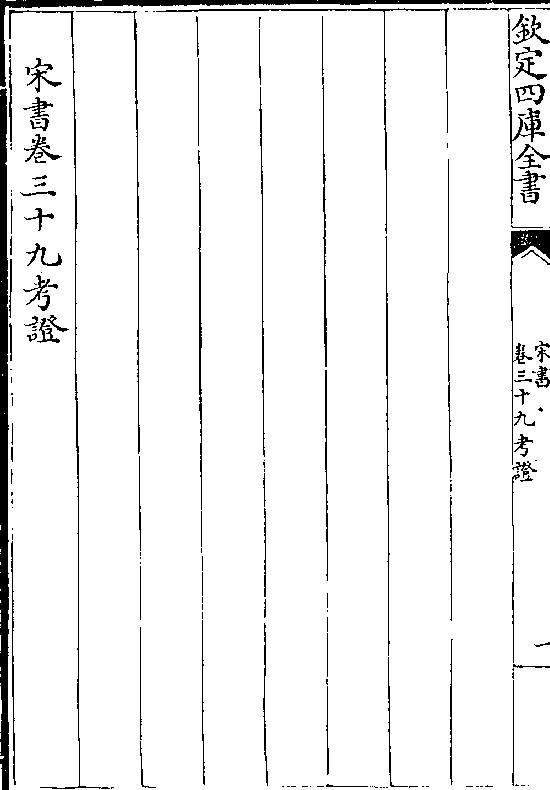 欽定四庫全書
宋書
卷三十九考證
一
宋書卷三十九考證